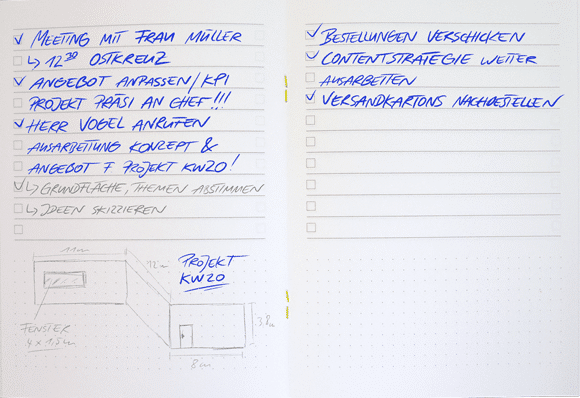 MEETING MIT FRAU MÜLLER
↳ 12³⁰ OSTKREUZ
ANGEBOT ANPASSEN/KPI
PROJEKT PRÄSI AN CHEF!!!
HERR VOGEL ANRUFEN
AUSARBEITUNG KONZEPT &
ANGEBOT F PROJEKT KW20!
↳ GRUNDFLÄCHE, THEMEN ABSTIMMEN
↳ IDEEN SKIZZIEREN
11m
12m
PROJEKT
KW20
3.8m
FENSTER
4 x 1,5m
8m
BESTELLUNGEN VERSCHICKEN
CONTENTSTRATEGIE WEITER
AUSARBEITEN
VERSANDKARTONS NACHBESTELLEN